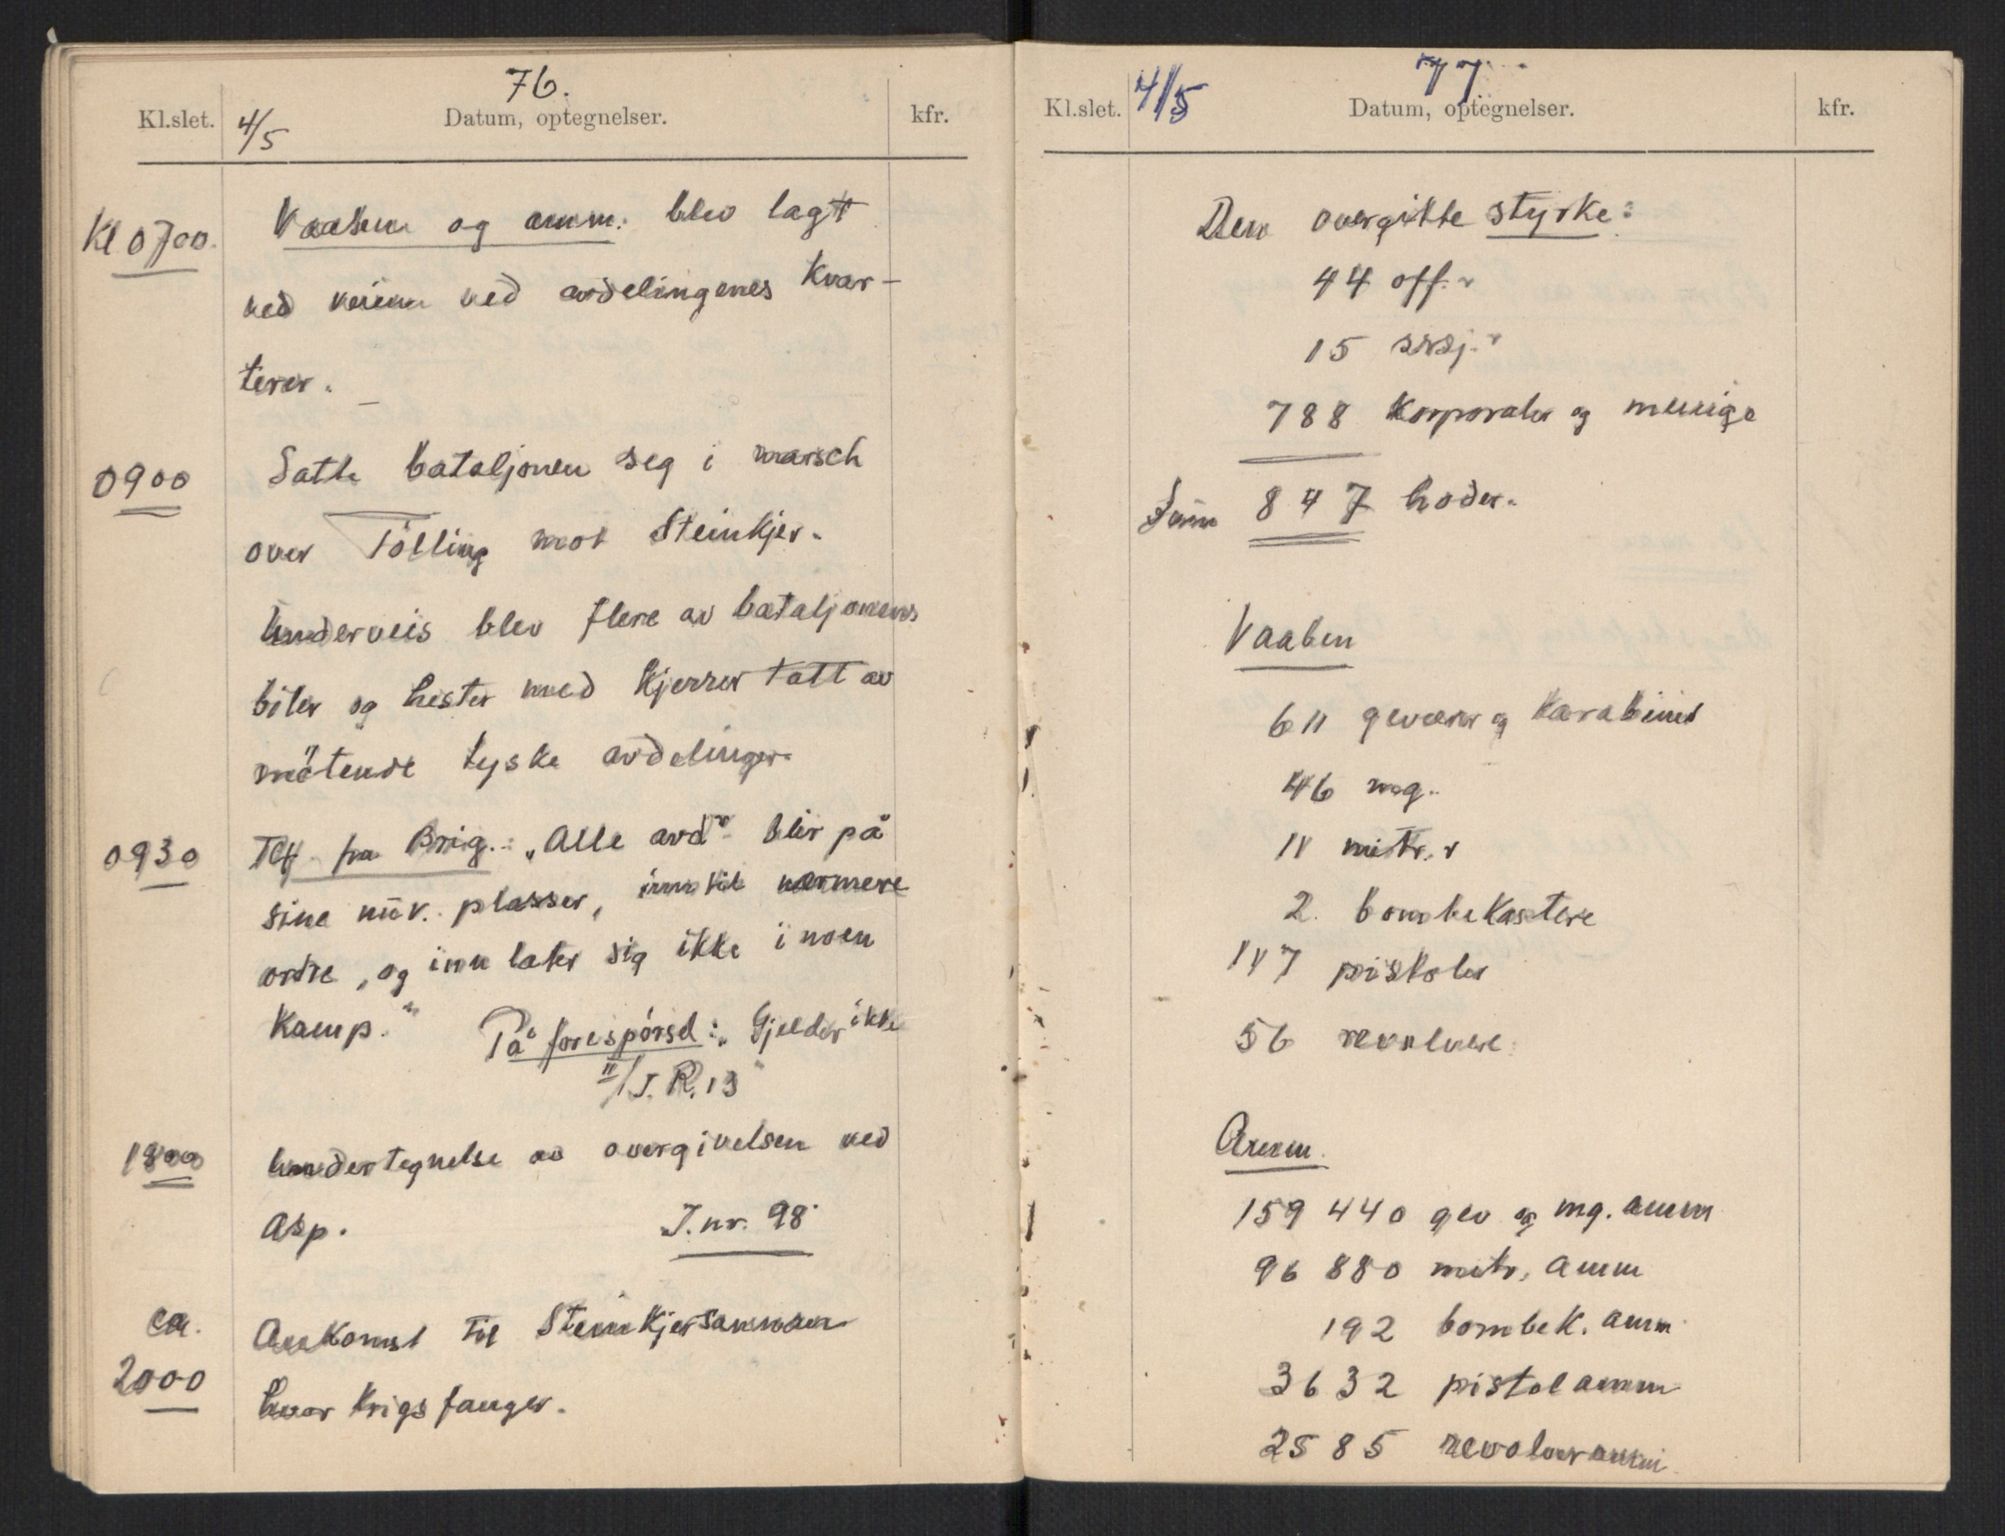 76.
Kl.slet. 4/5 Datum, optegnelser. kfr.
Kl 0700. Vaaben og amm. blev lagt
ved veien ved avdelingenes kvar-
terer.
0900 Satte bataljonen seg i marsch
over Tölling mot Steinkjer.
Underveis blev flere av bataljonens
biler og hester med kjerrer tatt av
møtende tyske avdelinger.
0930 Tlf fra Brig.: „Alle avdr blir på
sine nuv. plasser, inntil nærmere
ordre, og inn later sig ikke i noen
kamp." På forespørsel: „Gjelder ikke
II/I.R.13"
1800 Undertegnelse av overgivelsen ved
Asp. J.nr. 98
ca. Ankomst til Steinkjersannan
2000 hvor krigsfanger.
77
Kl.slet. 4/5 Datum, optegnelser. kfr.
Den overgitte styrke:
44 off.r
15 srsj.r
788 korporaler og menige
Sum 847 hoder.
Vaaben
611 geværer og karabiner
46 mg.
11 mitr.r
2 bombekastere
117 pistoler
56 revolvere
Amm.
159 440 gev og mg. amm
96 880 mitr. amm
192 bombek. amm
3632 pistol amm
2585 revolver amm